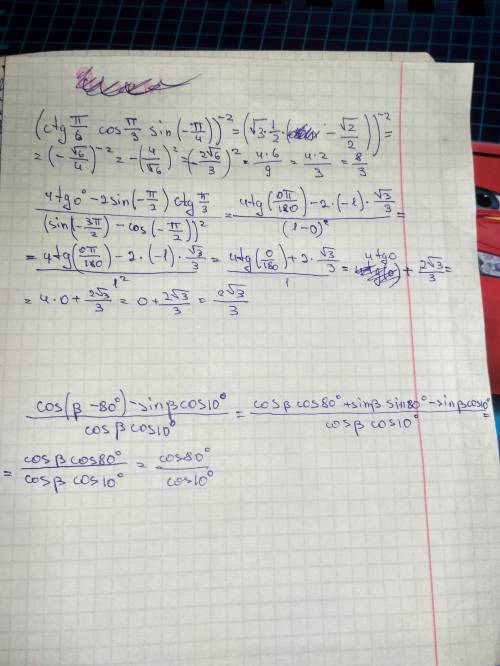 (ctg π/6 cos π/3 sin(-π/4))^-2 = (√3·1/2·(-√2/2))^-2 =
= (-√6/4)^-2 = -(4/√6)^2 = (-2√6/3)^2 = 4·6/9 = 4·2/3 = 8/3
(4tg0° - 2sin(-π/2) ctg π/3)/(sin(-3π/2) - cos(-π/2))^2 = (4tg(0π/180) - 2·(-1)·√3/3)/(1-0)^2 =
= (4tg(0π/180) - 2·(-1)·√3/3)/1^2 = (4tg(0/180) + 2·√3/3)/1 = 4tg0 + 2√3/3 =
= 4·0 + 2√3/3 = 0 + 2√3/3 = 2√3/3
(cos(β - 80°) - sinβcos10°)/(cosβcos10°) = (cosβcos80° + sinβ sin80° - sinβcos10°)/(cosβcos10°) =
= (cosβcos80°)/(cosβcos10°) = cos80°/cos10°